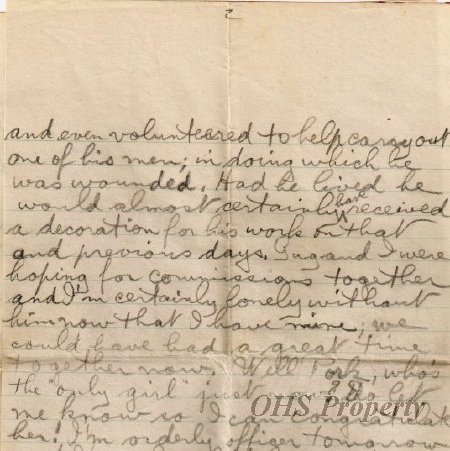 2
and even volunteered to help carry out
one of his men; in doing which he
was wounded. Had he lived he
would almost certainly have received
a decoration for his work on that
and previous days. Ing and I were
hoping for commissions together
and I'm certainly lonely without
him now that I have mine; we
could have had a great time
together now. Well Pork, who's
the "only girl" just now? Do let
me know so I can congratulate
her. I'm orderly officer tomorrow
OHS Property